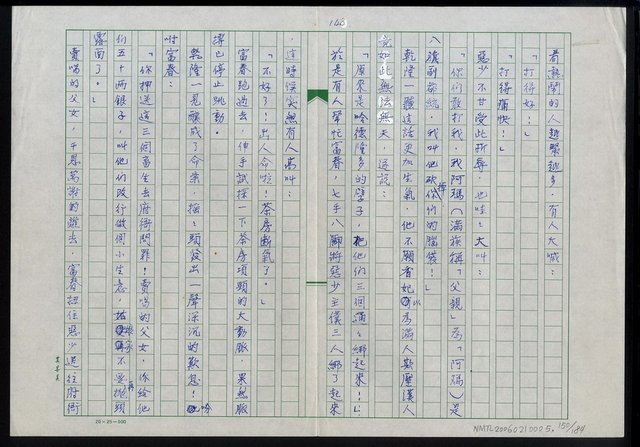 143
看熱鬧的人越聚越多，有人大喊：
「打得好！」
「打得痛快！」
惡少不甘受此折辱，也哇哇大叫：
「你們敢打我，我阿瑪（滿族稱「父親」為「阿瑪」）是
八旗副都統，我叫他砍掉你們的腦袋！」
乾隆一聽這話更加生氣，他不顧香妃以為滿人欺壓漢人
竟如此無法無天，遂說：
「原來是哈德隆多的孽子，把他們三個綑綁起來！」
於是有人幫忙富春，七手八腳將惡少主僕三人綁了起來
，這時候突然有人高叫：
「不好了！出人命啦！茶房斷氣了。」
富春跑過去，伸手試探一下茶房頸頭的大動脈，果然脈
搏已停止跳動。
乾隆一見釀成了命案，搖搖頭發出一聲深沉的歎息！吩
咐富春：
「你押送這三個畜生去府衙問罪！賣唱的父女，你給他
們五十兩銀子，叫他們改行做個小生意，姑娘家不要拋頭
露面了。」
賣唱的父女，千恩萬謝的離去，富春押住惡少送往府衙
20×25=500
NMTL20060210005 150/184